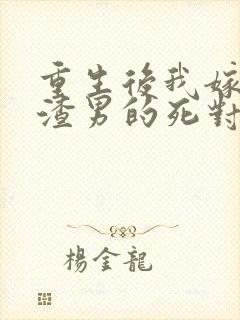 重生後我嫁
渣男的死對
楊金龍